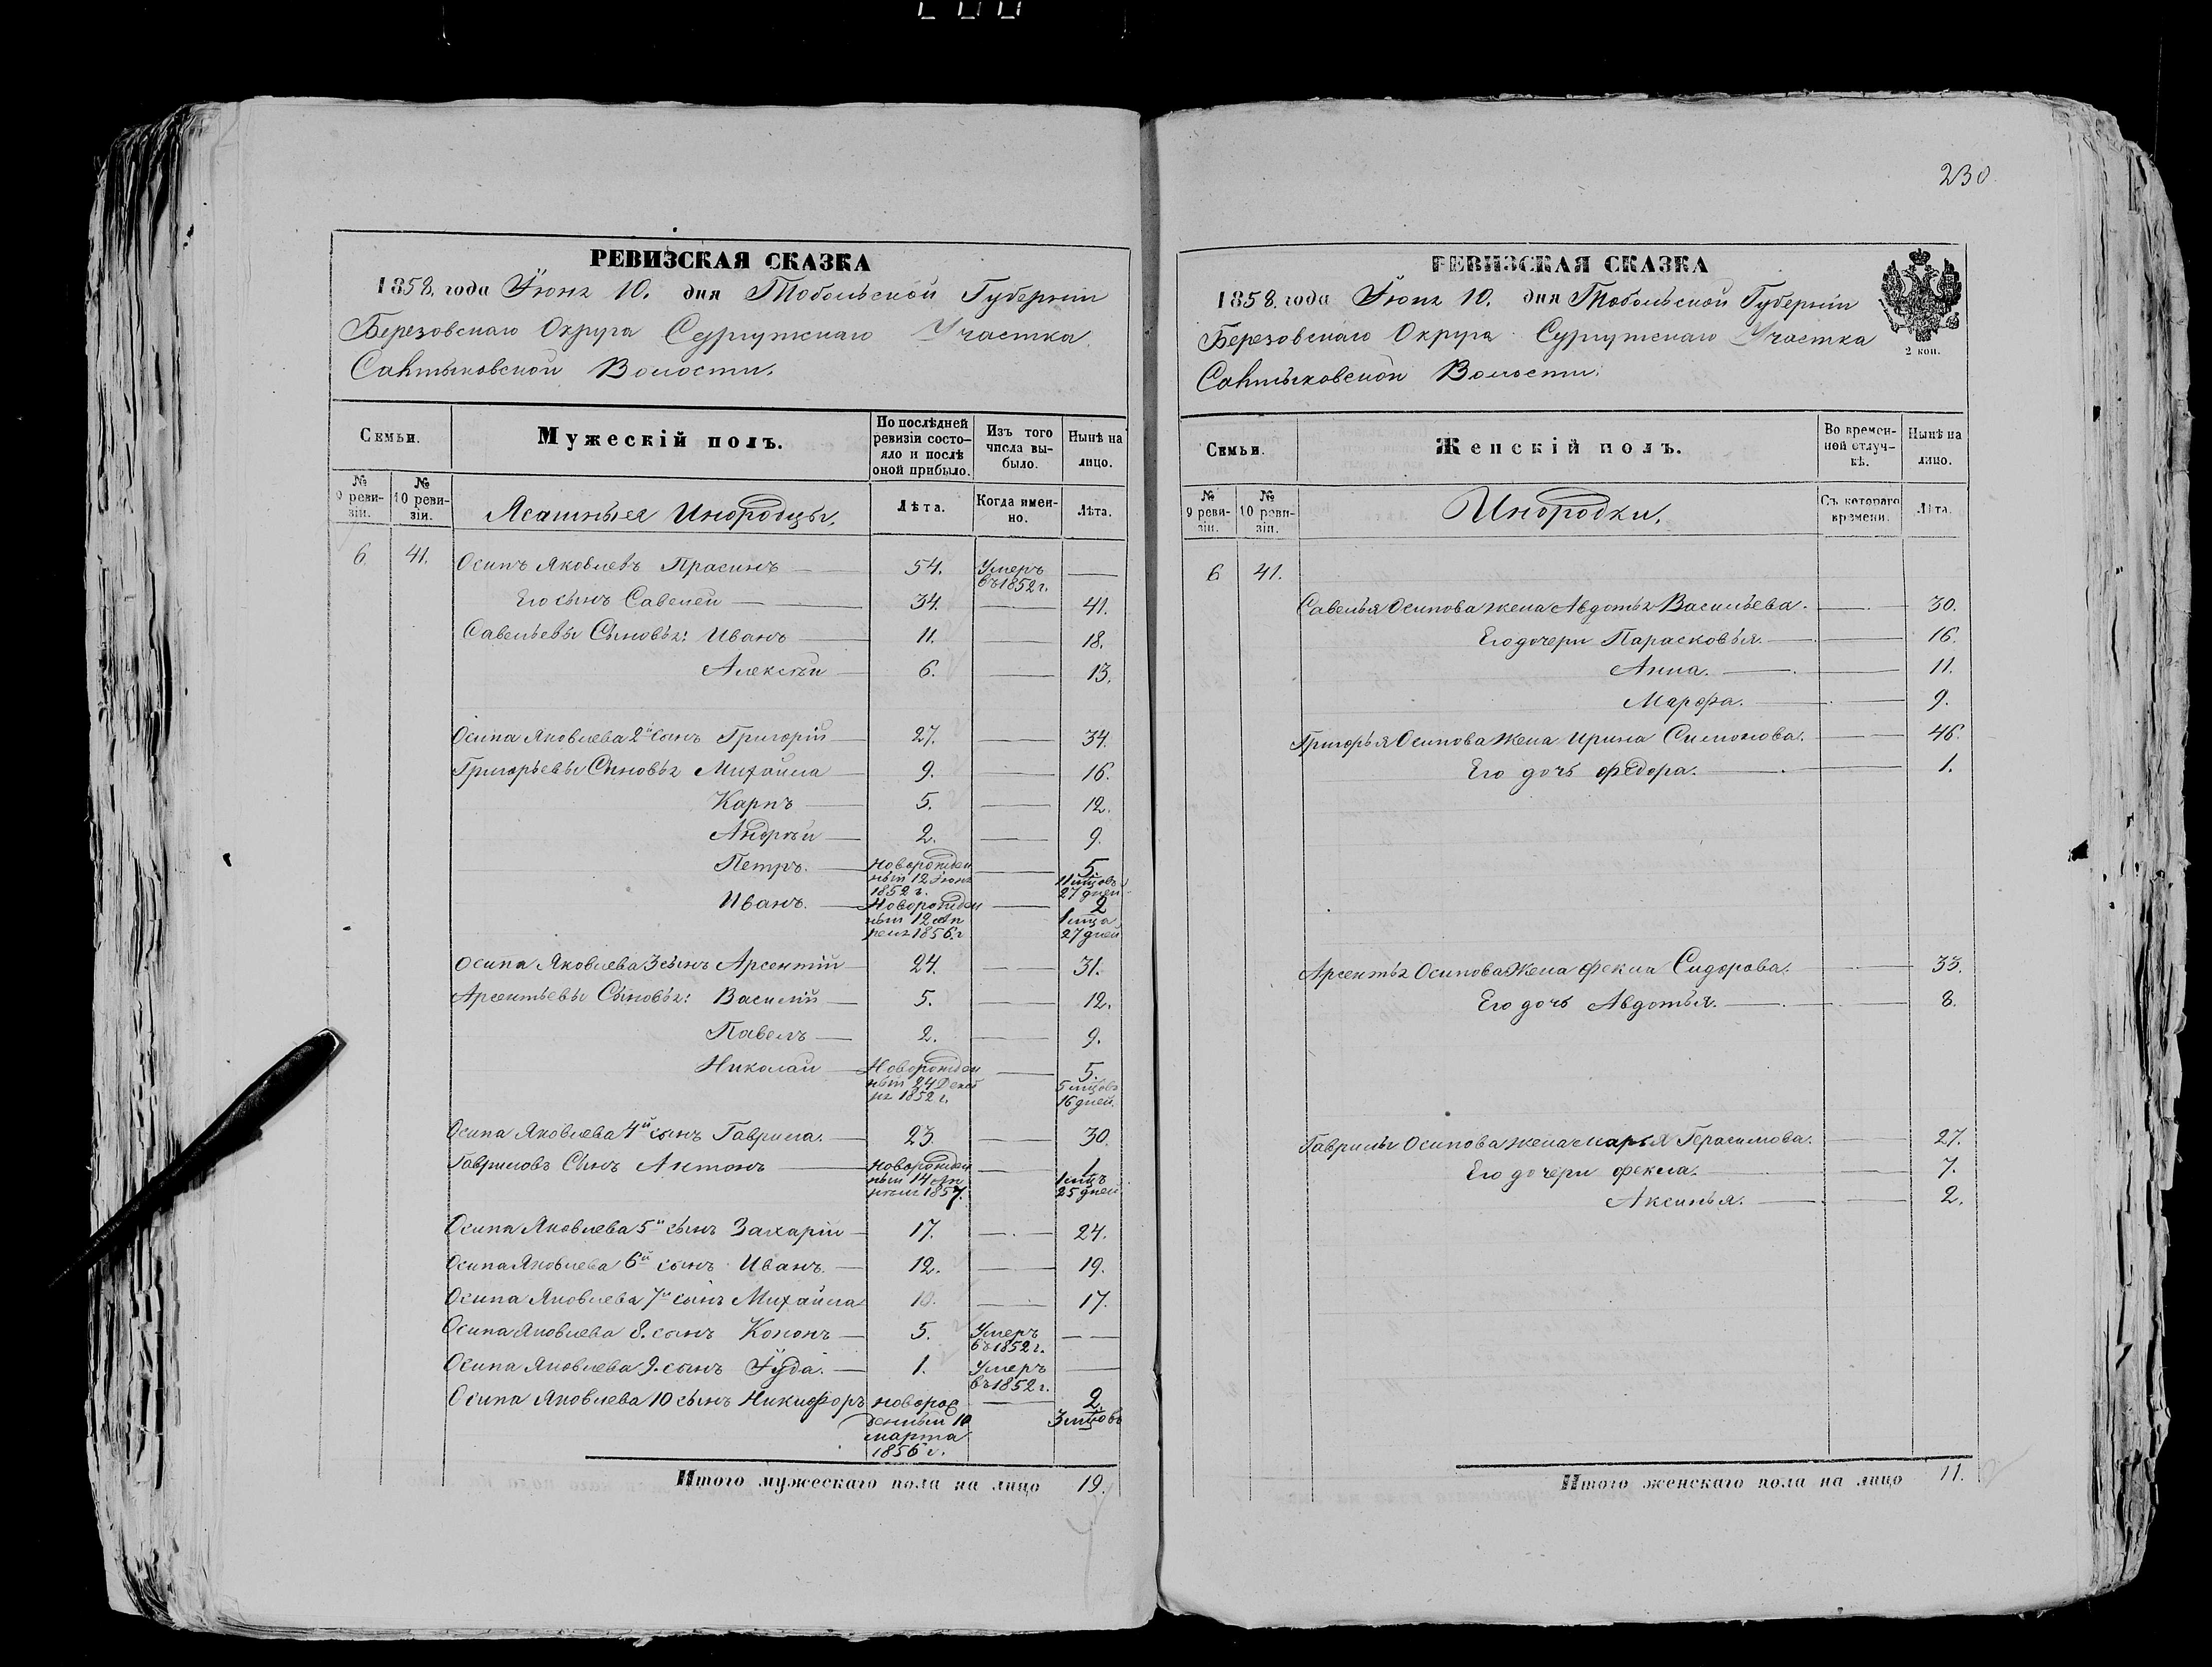 230
РЕВИЗСКАЯ СКАЗКА
1858. года Іюня 10. дня Тобольской Губерніи
Березовскаго Округа Сургутскаго Участка
Салтыковской Волости.
Семьи.
Мужескій полъ.
По послѣдней ревизіи состояло и послѣ оной прибыло.
Изъ того числа выбыло.
Нынѣ на лицо.
№ 9 ревизіи.
№ 10 ревизіи.
Ясашныя Инородцы.
Лѣта.
Когда именно.
Лѣта.
6. 41. Осипъ Яковлевъ Прасинъ — 54. Умеръ въ 1852 г. —
Его сынъ Савелей — 34. — 41.
Савельевы Сыновья: Иванъ — 11. — 18.
Алексѣй — 6. — 13.
Осипа Яковлева 2й сынъ Григорій — 27. — 34.
Григорьевы Сыновья Михайла — 9. — 16.
Карпъ — 5. — 12.
Андрѣй — 2. — 9.
Петръ. — Новорожденный 12 Іюня 1852 г. — 5. 11 мцовъ 27 дней
Иванъ. — Новорожденный 12 Апреля 1856. г — 2 1 мца 27 дней
Осипа Яковлева 3 сынъ Арсентій — 24. — 31.
Арсентьевы Сыновья: Василій — 5. — 12.
Павелъ — 2. — 9.
Николай — Новорожденный 24 Декабря 1852 г. — 5. 5 мцовъ 16 дней.
Осипа Яковлева 4й сынъ Гаврила. — 23. — 30.
Гавриловъ Сынъ Антонъ — Новорожденный 14 Апреля 1857. — 1 1 мцъ 25 дней
Осипа Яковлева 5й сынъ Захарій — 17. — 24.
Осипа Яковлева 6й сынъ Иванъ. — 12. — 19.
Осипа Яковлева 7й сынъ Михайла 10. — 17.
Осипа Яковлева 8. сынъ Кононъ — 5. Умеръ въ 1852 г. —
Осипа Яковлева 9. сынъ Іуда. — 1. Умеръ въ 1852 г. —
Осипа Яковлева 10 сынъ Никифоръ новорожденный 10 марта 1856 г. — 2. 3 мцовъ
Итого мужескаго пола на лицо 19.
РЕВИЗСКАЯ СКАЗКА
1858. года Іюня 10. дня Тобольской Губерніи
Березовскаго Округа Сургутскаго Участка
Салтыковской Волости.
2 коп.
Семьи.
Женскій полъ.
Во временной отлучкѣ.
Нынѣ на лицо.
№ 9 ревизіи.
№ 10 ревизіи.
Инородки.
Съ котораго времени.
Лѣта.
6 41.
Савелья Осипова жена Авдотья Васильева. — 30.
Его дочери Парасковья. — 16.
Анна. — 11.
Марфа. — 9.
Григорья Осипова Жена Ирина Симонова. — 46.
Его дочь Федора. — 1.
Арсентья Осипова Жена Фекла Сидорова. — 33.
Его дочь Авдотья. — 8.
Гаврилы Осипова жена Марья Герасимова. — 27.
Его дочери Фекла. — 7.
Аксинья. — 2.
Итого женскаго пола на лицо 11.